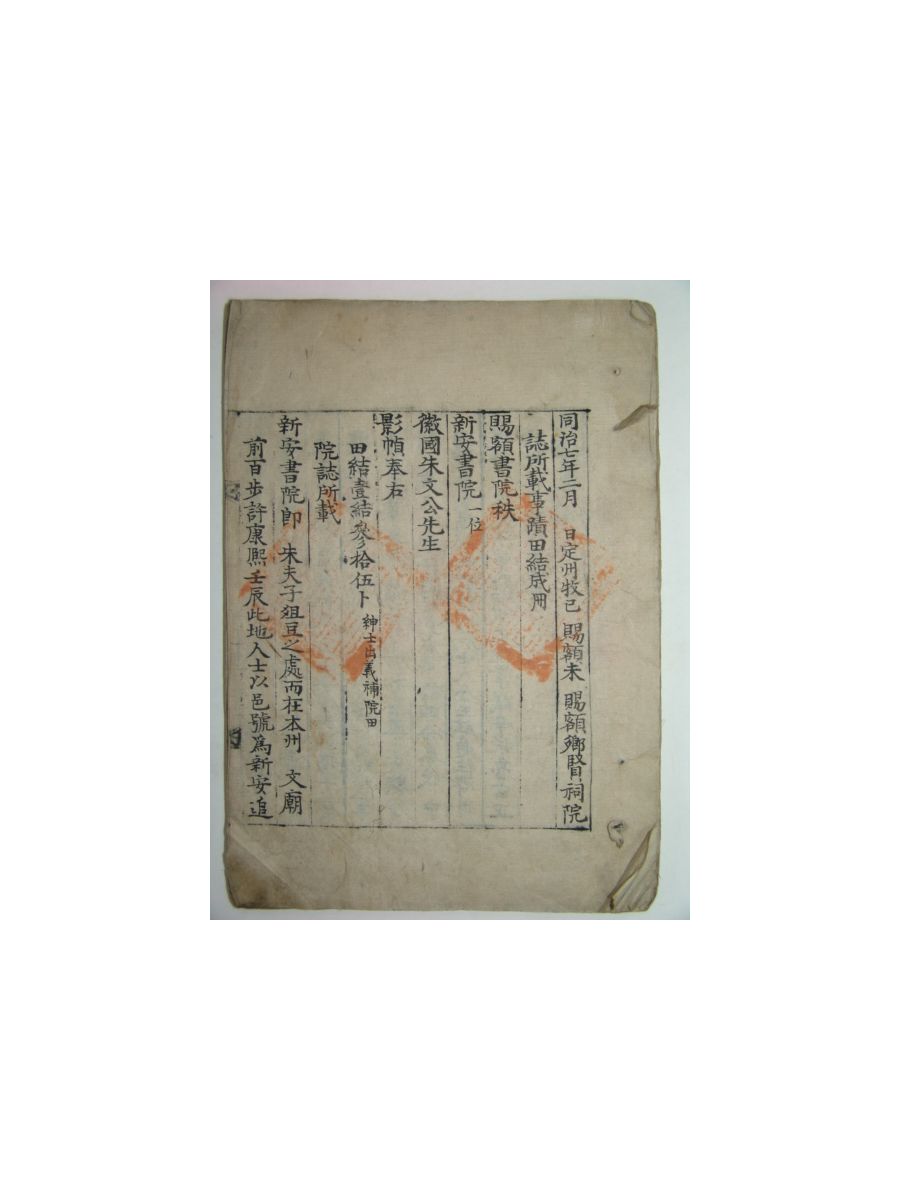 同治七年二月　日定州牧已　賜額未　賜額鄕賢祠院
誌所載事蹟田結成冊
賜額書院秩
新安書院 一位
徽國朱文公先生
影幀奉右
田結壹結參拾伍卜 紳士出義補院田
院誌所載
新安書院卽　朱夫子俎豆之處而在本州　文廟
前百步許康熙壬辰此地人士以邑號爲新安追